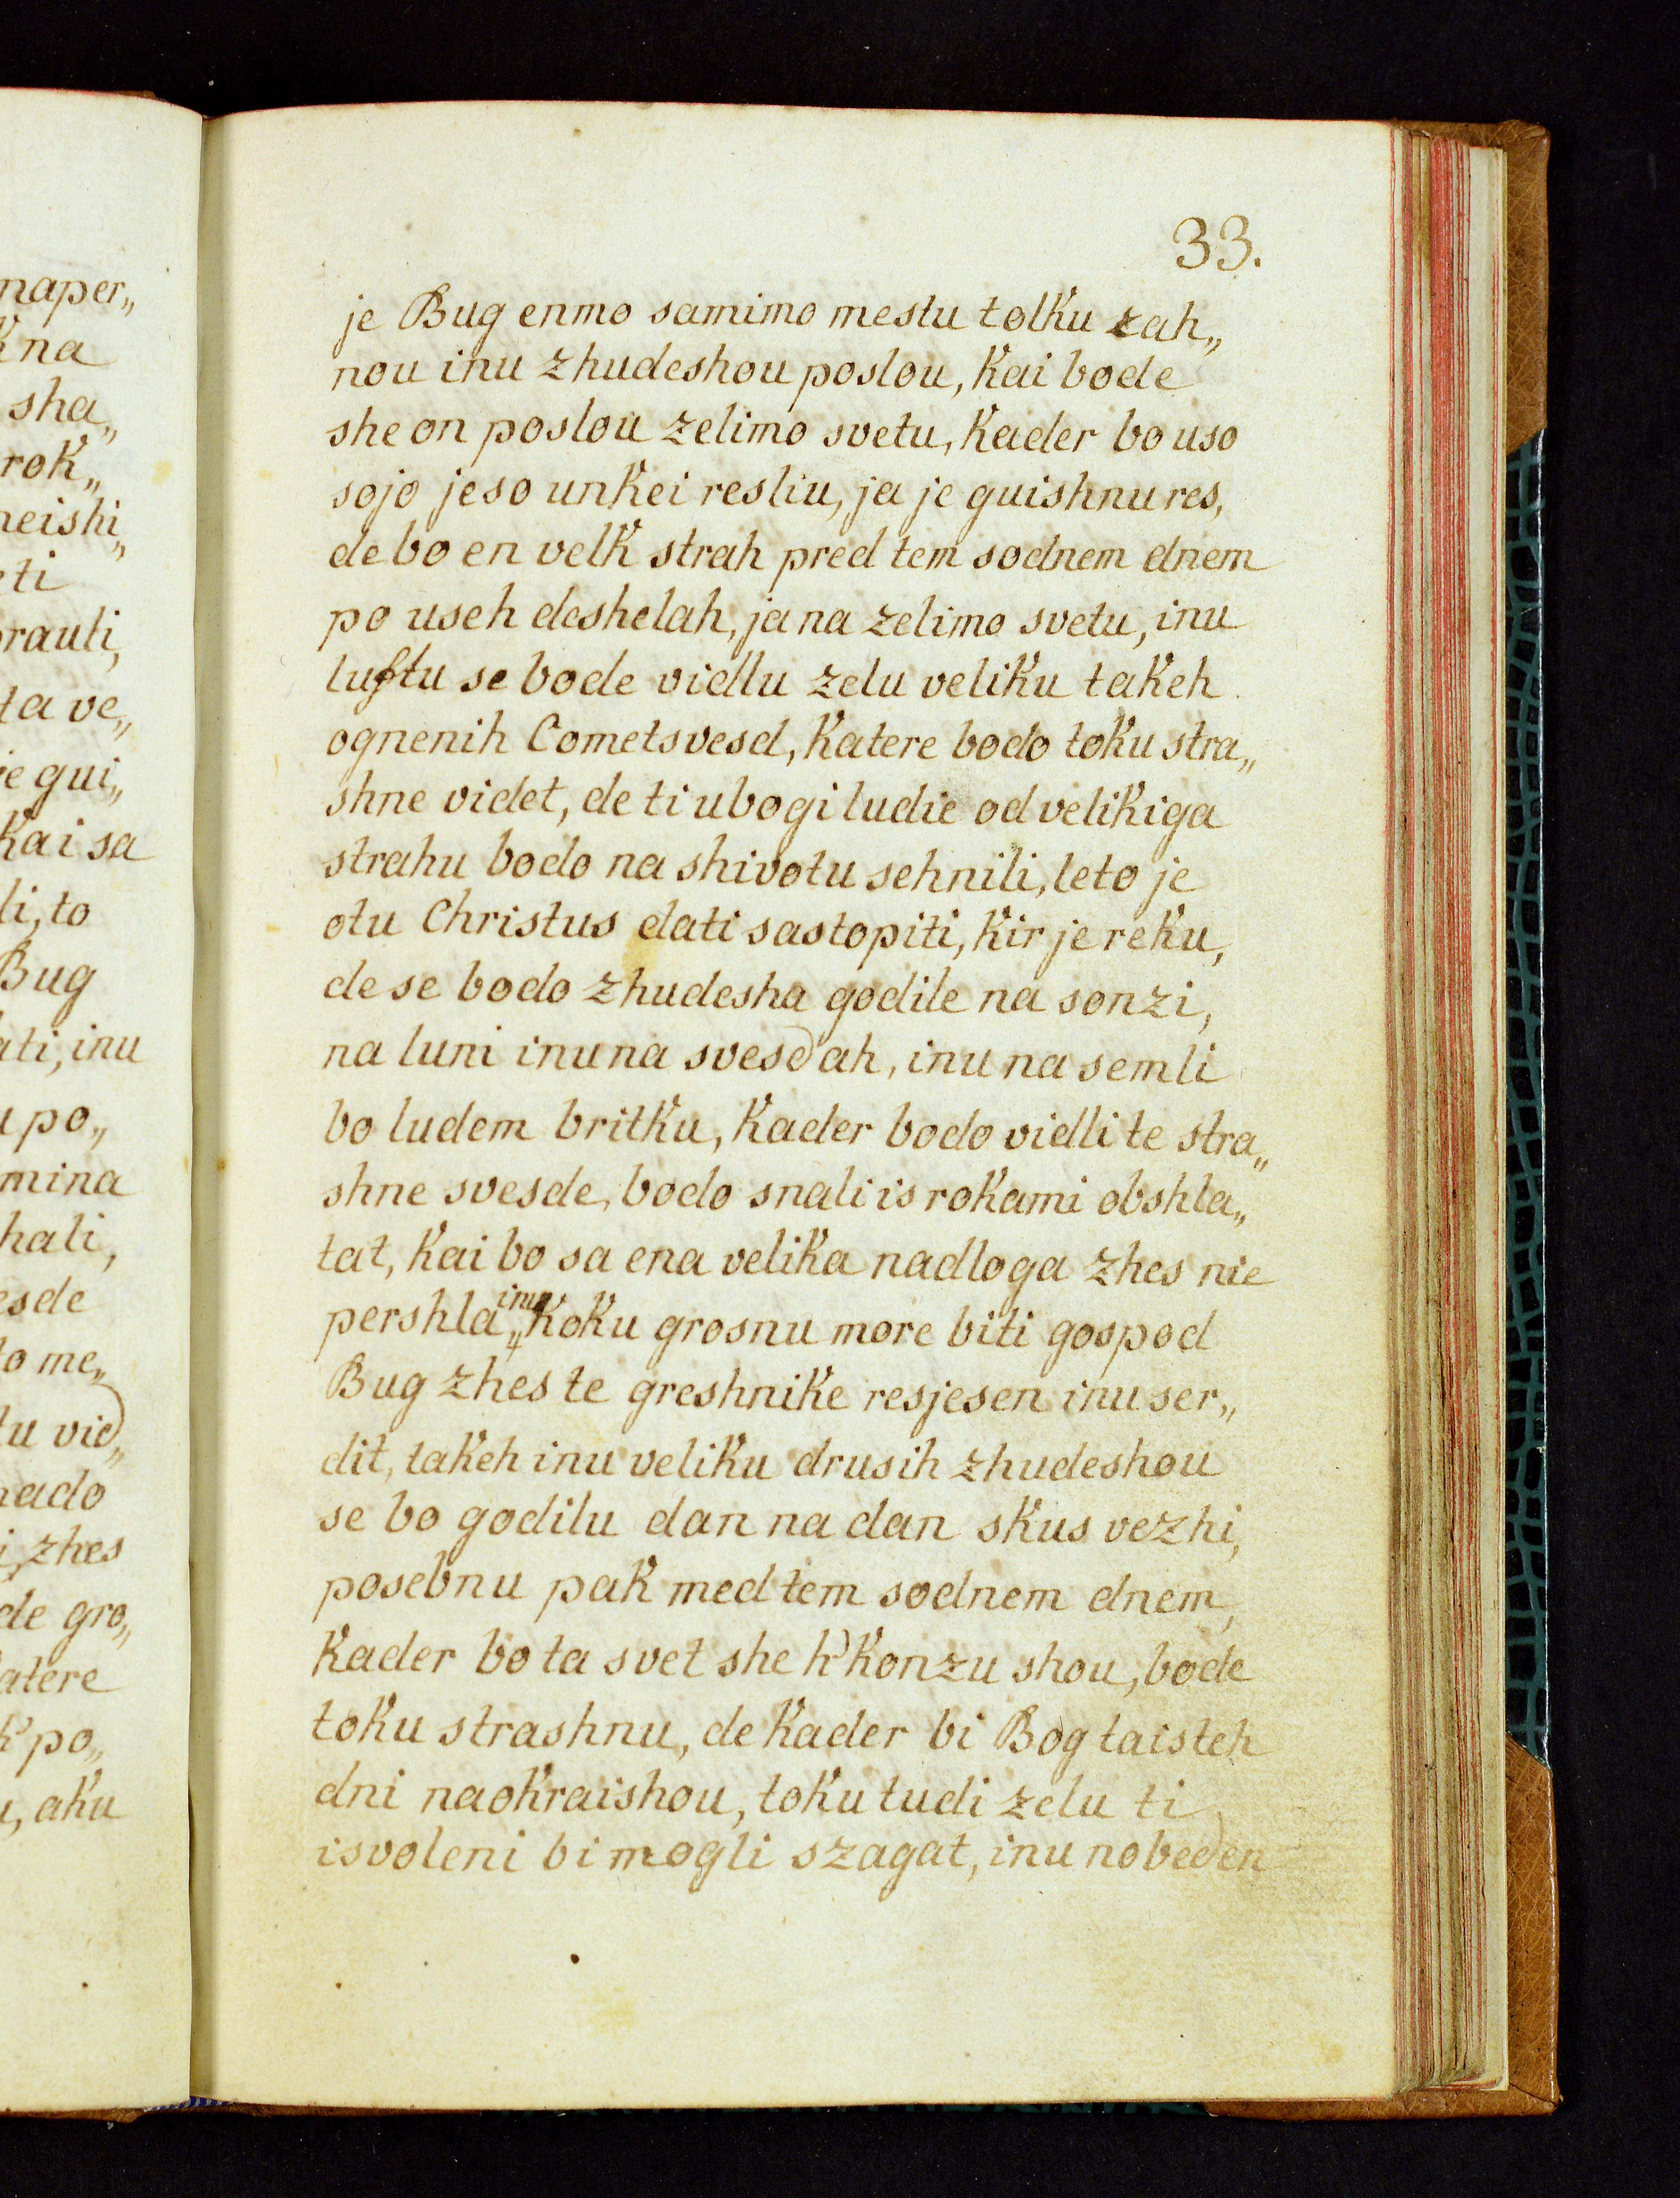 naper„
K na
sha„
rok„
neishi„
ti
rauti,
ta ve„
je gui„
Kai sa
li, to
Bug
ati, inu
u po„
mina
hali,
esde
to me„
tu vid„
nado
i, zhes
de gro„
atere
K po„
u, aku
33.
je Bug enmo samimo mestu tolku zah„
nou inu zhudeshou poslou, Kai bode
she on poslou zelimo svetu, Kader bo uso
sojo jeso unkei resliu, ja je guishnu res,
de bo en velk strah pred tem sodnem dnem
po useh deshelah, ja na zelimo svetu, inu
luftu se bode vidlu zelu veliku takeh
ognenih Cometsvesd, Katere bodo toku stra„
shne videt, de ti ubogi ludie od velikiga
strahu bodo na shivotu sehnili, leto je
otu Christus dati sastopiti, Kir je reku,
de se bodo zhudesha godile na sonzi,
na luni inu na svesdah, inu na semli
bo ludem britku, Kader bodo vidli te stra„
shne svesde, bodo snali is rokami obshla„
tat, Kai bo sa ena velika nadloga zhes nie
pershla, inu Koku grosnu more biti gospod
Bug zhes te greshnike resjesen inu ser„
dit, takeh inu veliku drusih zhudeshou
se bo godilu dan na dan skus vezhi,
posebnu pak med tem sodnem dnem,
Kader bo ta svet she h' Konzu shou, bode
toku strashnu, de Kader bi Bog taisteh
dni naokraishou, toku tudi zelu ti
isvoleni bi mogli szagat, inu nobeden